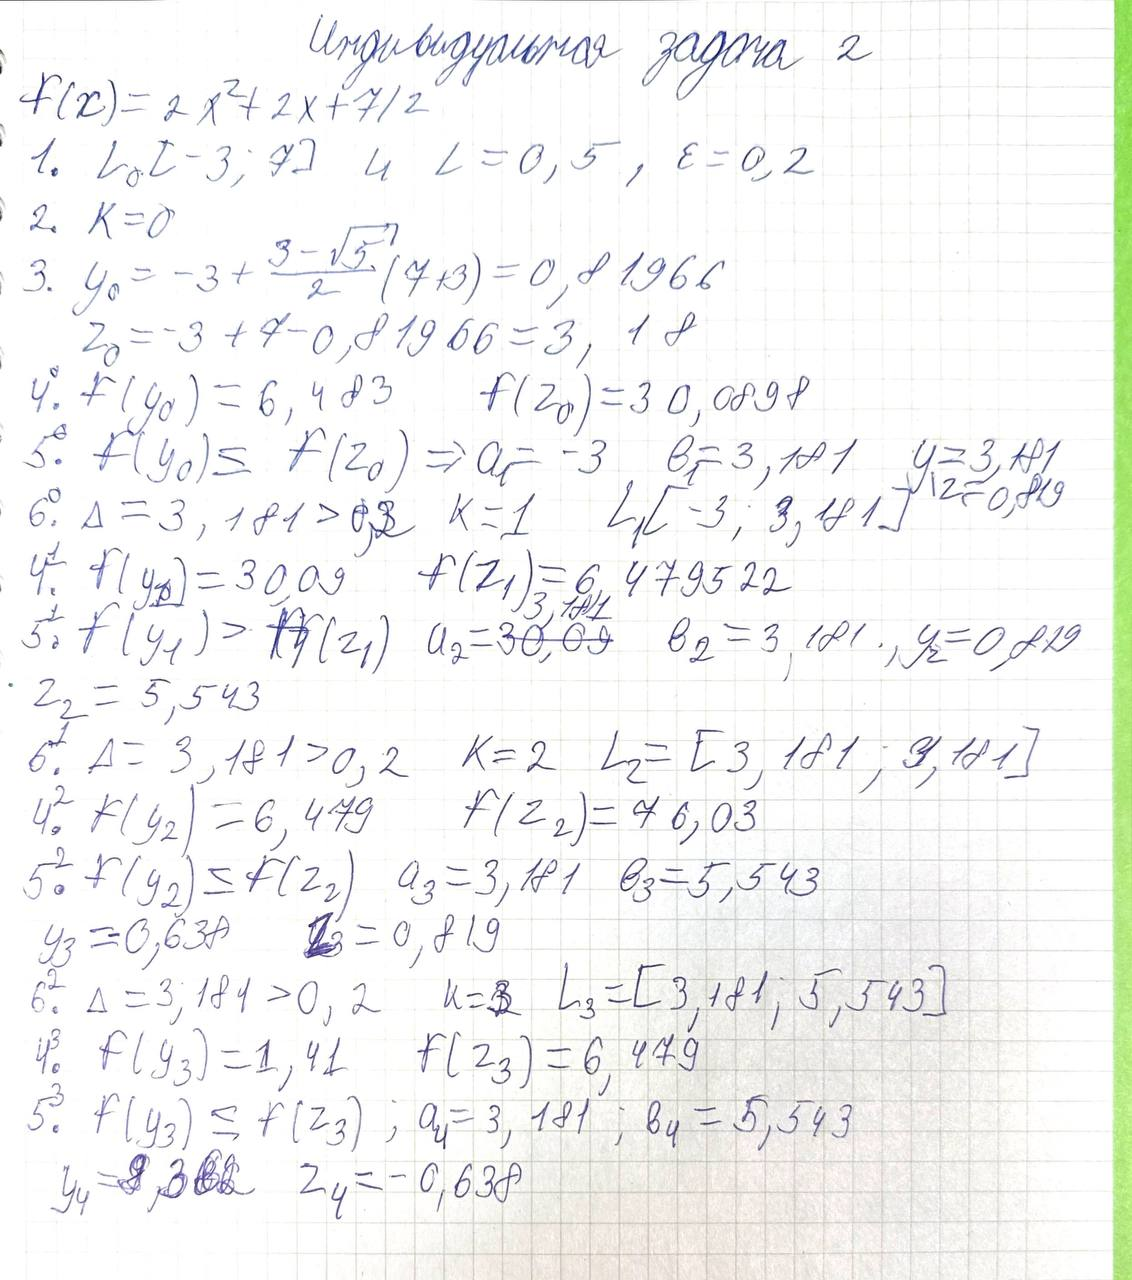 Индивидуальная задача 2
f(x) = 2x²+2x+7/2
1. L₀[-3; 7] и L=0,5, ε=0,2
2. K=0
3. y₀ = -3 + (3-√5)/2 (7+3) = 0,81966
z₀ = -3+7-0,81966=3,18
4⁰. f(y₀) = 6,483 f(z₀)=30,0898
5⁰. f(y₀) ≤ f(z₀) => a₁= -3 в₁=3,181 y=3,181
z=0,819
6⁰. Δ = 3,181 > 0,2 K=1 L₁[-3; 3,181]
4¹. f(y₁)=30,09 f(z₁)=6,479522
5¹. f(y₁) > f(z₁) a₂=3,181 в₂=3,181, y₂=0,819
z₂ = 5,543
6¹. Δ= 3,181>0,2 K=2 L₂= [3,181; 3,181]
4². f(y₂) = 6,479 f(z₂)=76,03
5². f(y₂) ≤ f(z₂) a₃=3,181 в₃=5,543
y₃ =0,638 z₃ = 0,819
6². Δ =3,181 >0,2 K=3 L₃=[3,181; 5,543]
4³. f(y₃)=1,41 f(z₃)=6,479
5³. f(y₃) ≤ f(z₃); a₄=3,181; в₄=5,543
y₄= z₄=-0,638